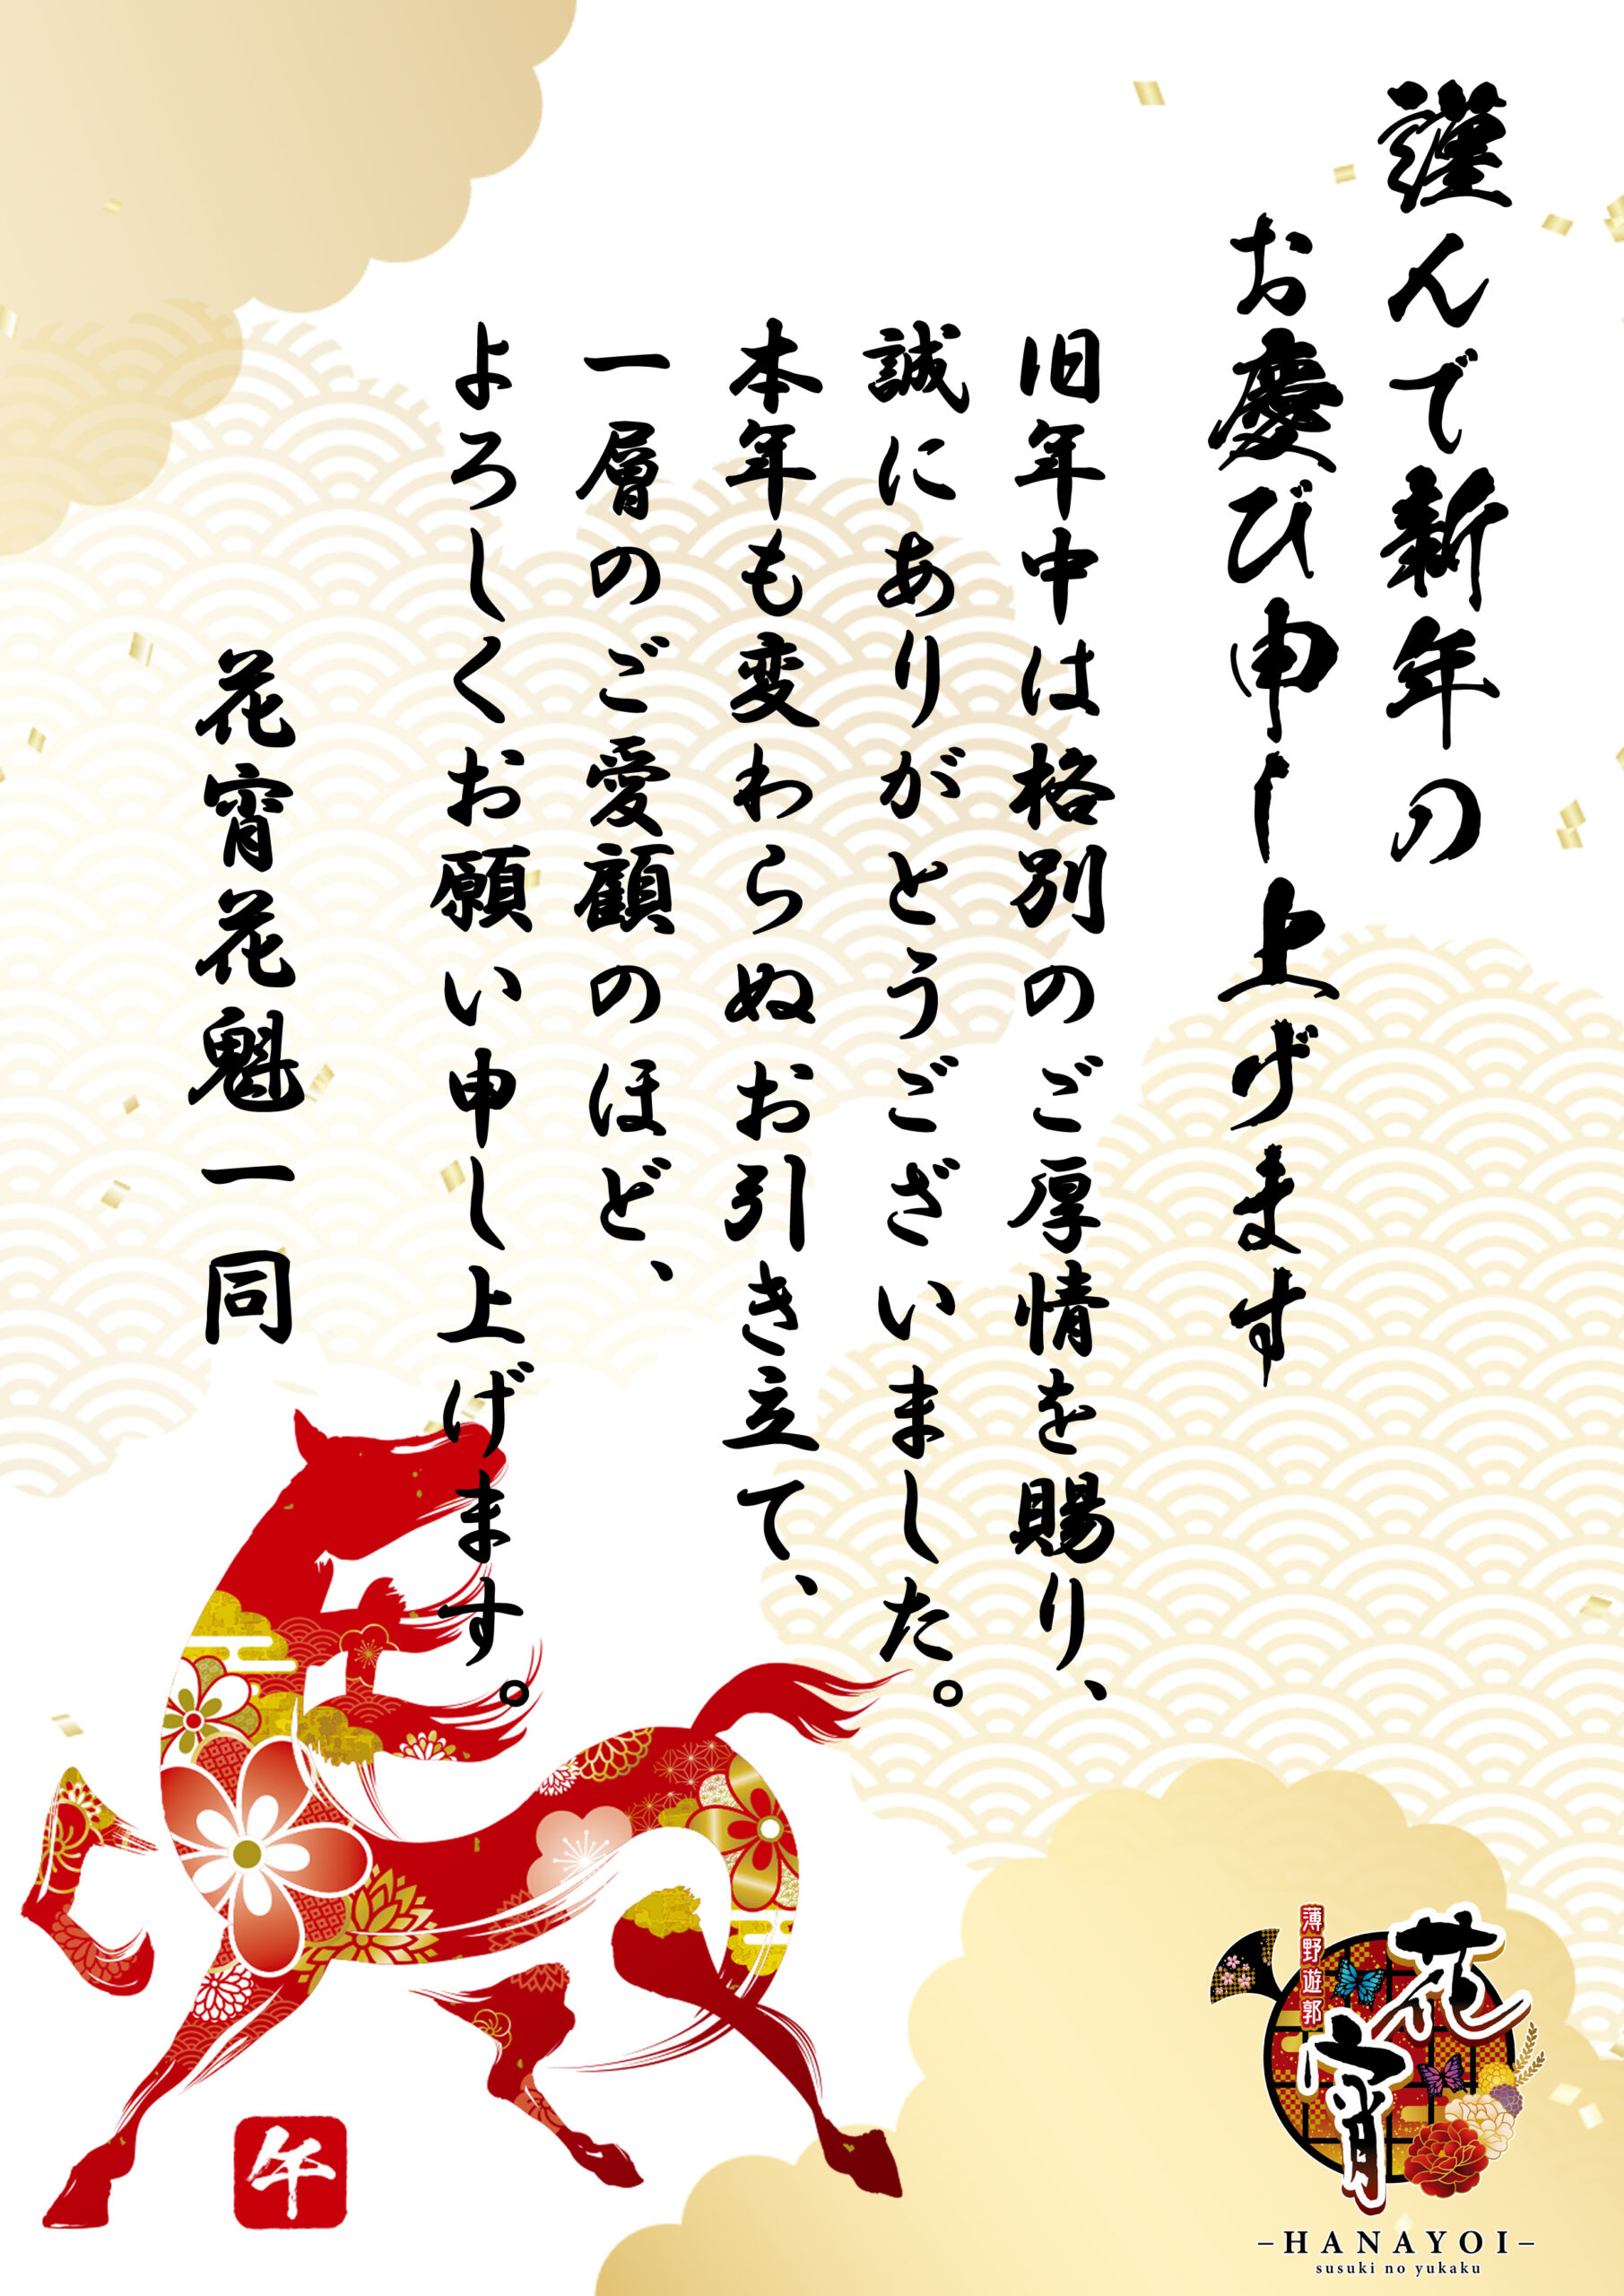 謹んで新年の
お慶び申し上げます
旧年中は格別のご厚情を賜り、
誠にありがとうございました。
本年も変わらぬお引き立て、
一層のご愛顧のほど、
よろしくお願い申し上げます。
花宵花魁一同
午
薄野遊郭
花宵
-HANAYOI-
susuki no yukaku